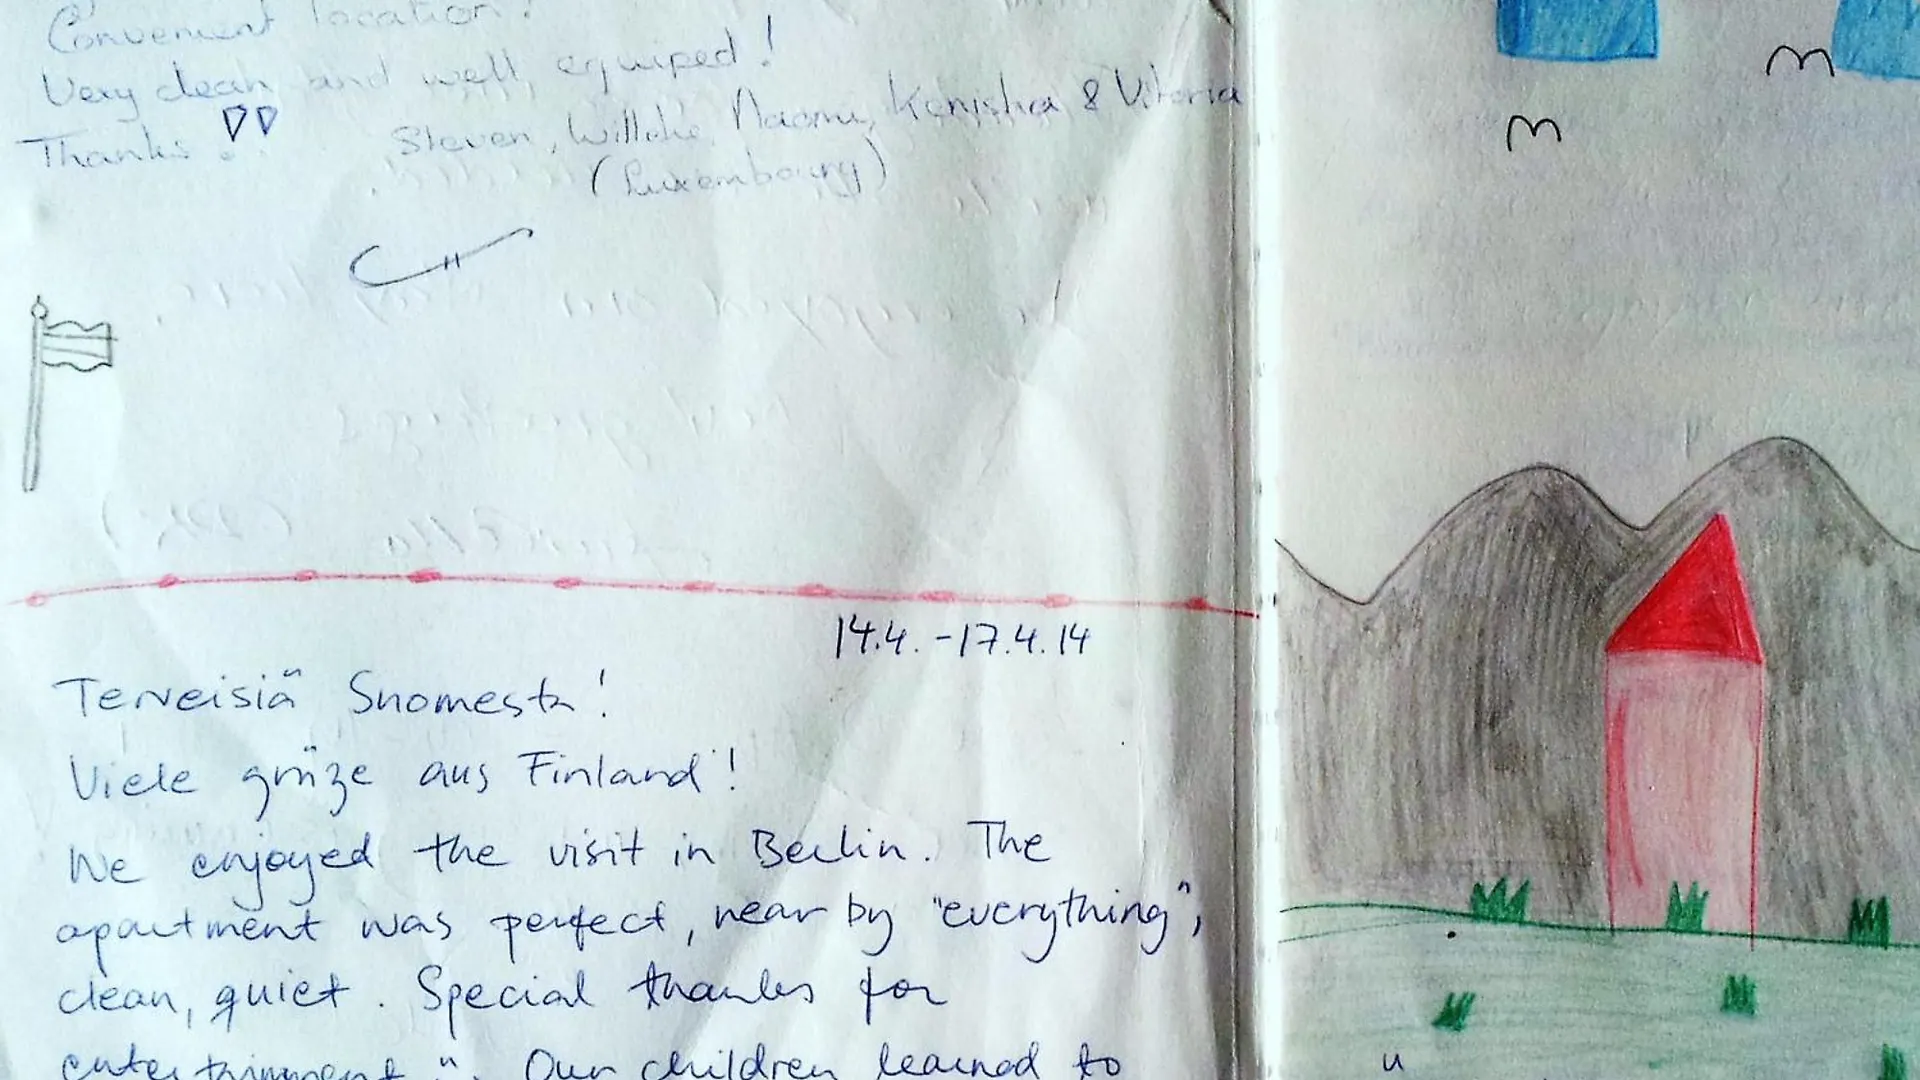 Convenient location!
Very clean and well equiped!
Thanks!! Steven, Naomi, Kenisha & Vitoria
(Luxembourg)
14.4. - 17.4.14
Terveisiä Suomesta!
Viele grüze aus Finland!
We enjoyed the visit in Berlin. The
apartment was perfect, near by "everything",
clean, quiet. Special thanks for
entertainment". Our children learned to